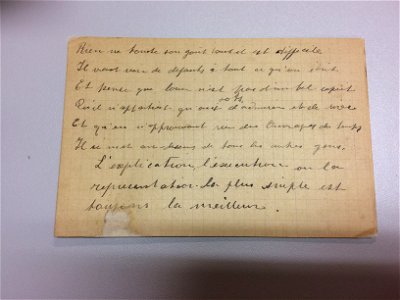 Rien ne touche son goût tant il est difficile
Il veut voir des défauts à tout ce qu'on écrit
Et pense que louer n'est pas d'un bel esprit
Qu'il n'appartient qu'aux sots d'admirer et de rire
Et qu'en n'approuvant rien des Ouvrages du temps
Il se met au-dessus de tous les autres gens.
L'explication, l'exécution ou la
représentation la plus simple est
toujours la meilleure.